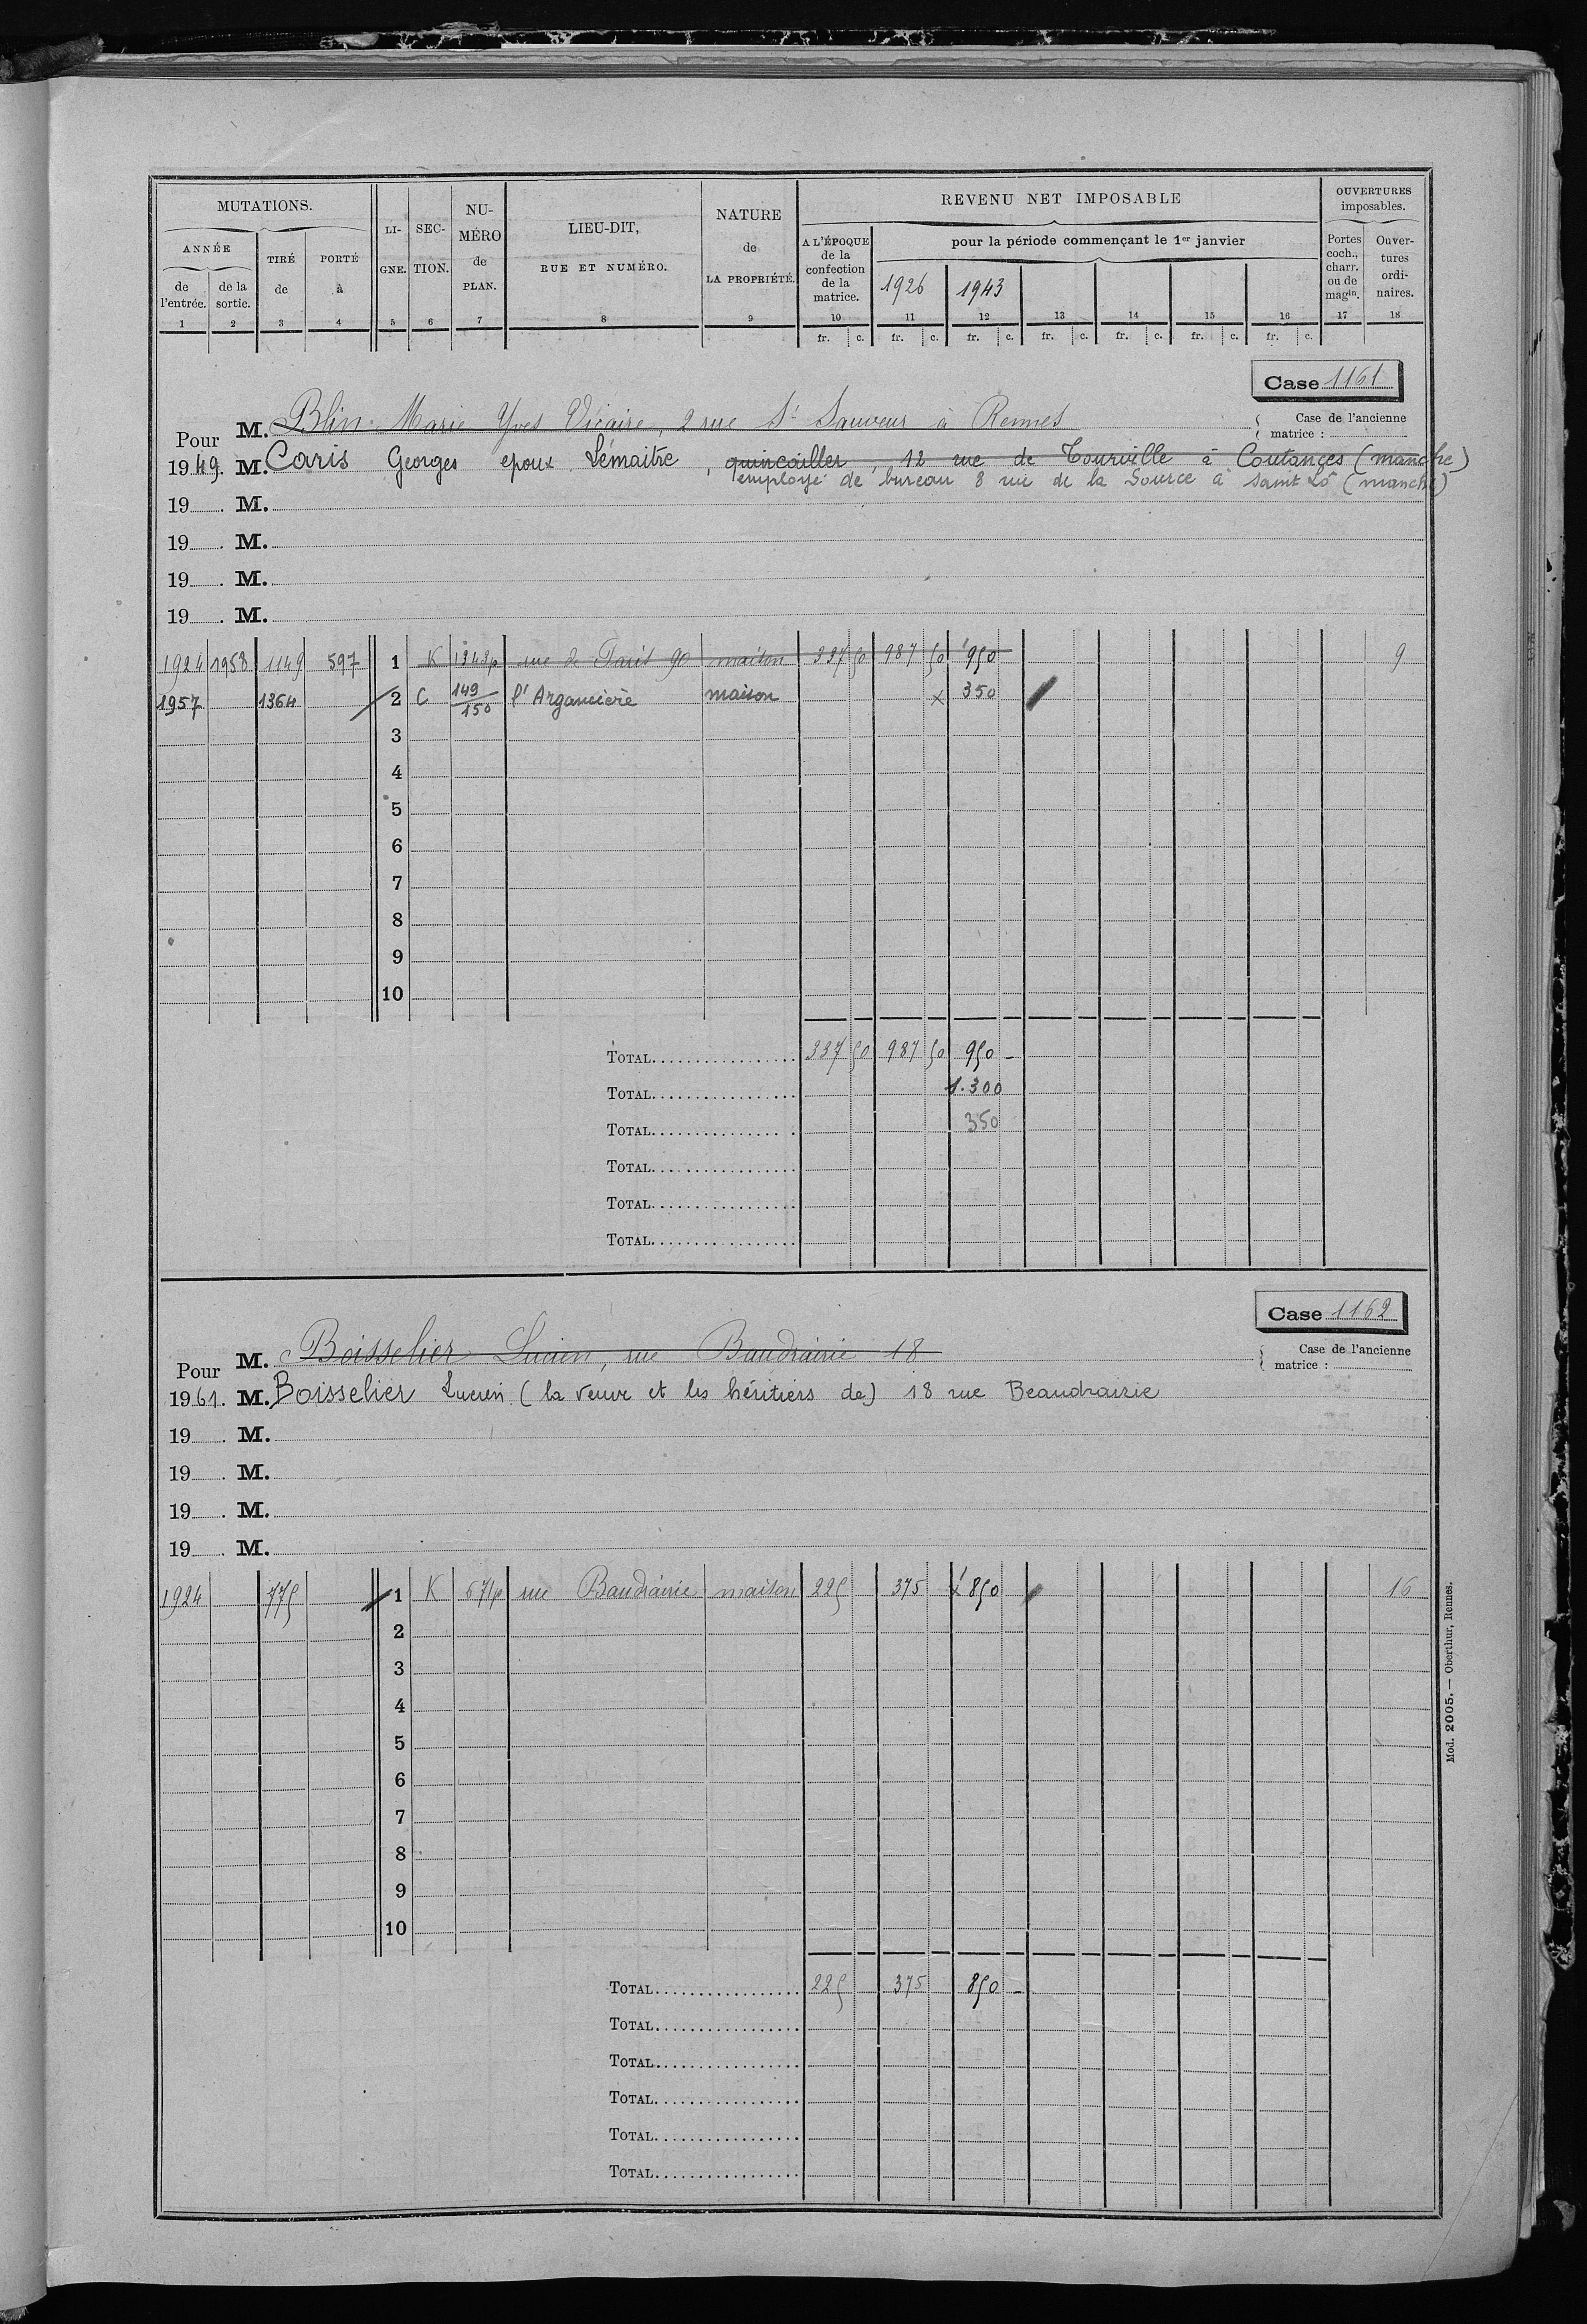 MUTATIONS.
ANNÉE
de l'entrée.
de la sortie.
TIRÉ de
PORTÉ à
LI-GNE.
SEC-TION.
NU-MÉRO de PLAN.
LIEU-DIT,
RUE ET NUMÉRO.
NATURE de LA PROPRIÉTÉ.
REVENU NET IMPOSABLE
A L'ÉPOQUE de la confection de la matrice.
pour la période commençant le 1er janvier
1926 1943
OUVERTURES imposables.
Portes coch., charr. ou de magin.
Ouver-tures ordi-naires.
1 2 3 4 5 6 7 8 9 10 11 12 13 14 15 16 17 18
fr. c. fr. c. fr. c. fr. c. fr. c. fr. c. fr. c.
Case 1161
Pour M. Blin Marie Yves Vicaire, 2 rue St Sauveur à Rennes
Case de l'ancienne matrice :
1949. M. Caris Georges epoux Lemaitre, quincailler, 12 rue de Tourville à Coutances (manche)
employé de bureau 8 rue de la Source à saint Lô (manche)
19 . M.
19 . M.
19 . M.
19 . M.
1924 1958 1149 597 1 K 1343p rue de Paris 90 maison 337 50 987 50 950 9
1957 1364 2 C 149/150 l'Argancière maison x 350
3
4
5
6
7
8
9
10
TOTAL 337 50 987 50 950 -
TOTAL 1.300
TOTAL 350
TOTAL
TOTAL
TOTAL
Case 1162
Pour M. Boisselier Lucien, rue Baudrairie 18
Case de l'ancienne matrice :
1961. M. Boisselier Lucien (la veuve et les héritiers de) 18 rue Beaudrairie
19 . M.
19 . M.
19 . M.
19 . M.
1924 775 1 K 671p rue Baudrairie maison 225 375 x 850 16
2
3
4
5
6
7
8
9
10
TOTAL 225 375 850 -
TOTAL
TOTAL
TOTAL
TOTAL
TOTAL
Mod. 2005. — Oberthur, Rennes.